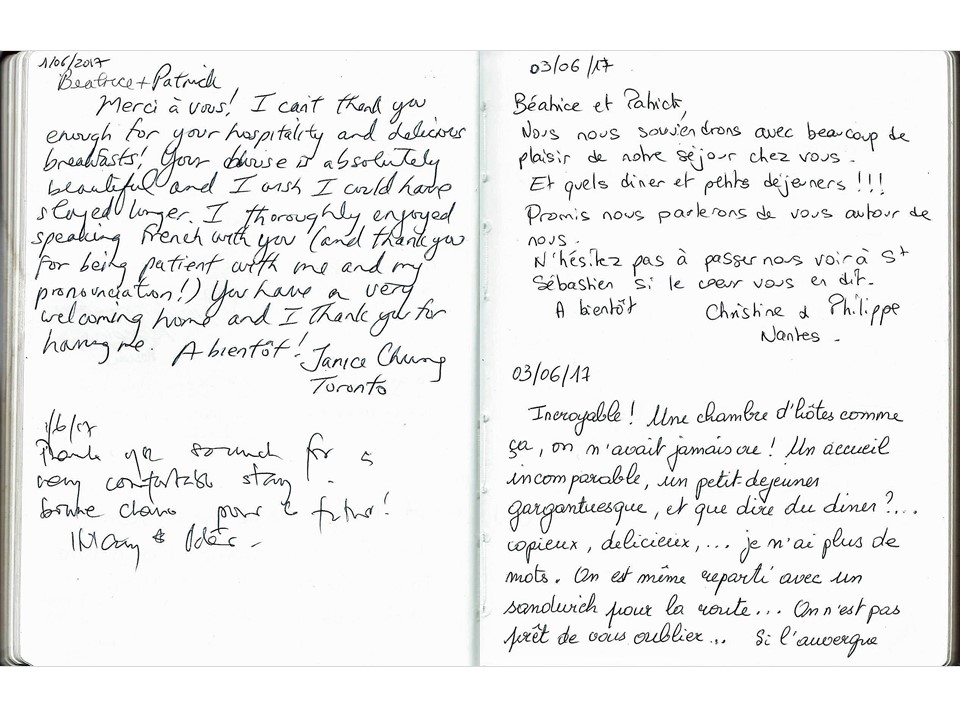 1/06/2017
Beatrice + Patrick
Merci à vous! I can't thank you
enough for your hospitality and delicious
breakfasts! Your house is absolutely
beautiful and I wish I could have
stayed longer. I thoroughly enjoyed
speaking French with you (and thank you
for being patient with me and my
pronounciation!) You have a very
welcoming home and I thank you for
having me. A bientôt! Janice Chung
Toronto
1/6/17
Thank you so much for a
very comfortable stay.
bonne chance pour le futur!
03/06/17
Béatrice et Patrick,
Nous nous souviendrons avec beaucoup de
plaisir de notre séjour chez vous.
Et quels diner et petits déjeuners !!!
Promis nous parlerons de vous autour de
nous.
N'hésitez pas à passer nous voir à St
Sébastien si le coeur vous en dit.
A bientôt Christine & Philippe
Nantes.
03/06/17
Incroyable ! Une chambre d'hôtes comme
ça, on n'avait jamais vu ! Un accueil
incomparable, un petit dejeuner
gargantuesque, et que dire du diner ?...
copieux, delicieux,... je n'ai plus de
mots. On est même reparti avec un
sandwich pour la route... On n'est pas
prêt de vous oublier... Si l'auvergue